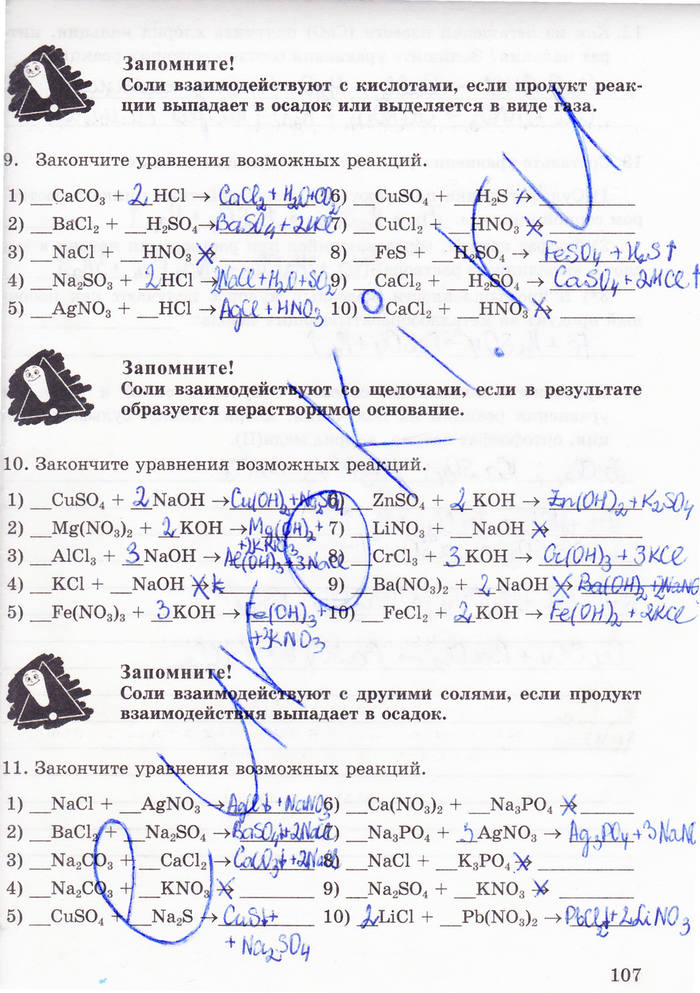 Запомните!
Соли взаимодействуют с кислотами, если продукт реак-
ции выпадает в осадок или выделяется в виде газа.
9. Закончите уравнения возможных реакций.
1) __CaCO₃ + 2 HCl → CaCl₂ + H₂O + CO₂ 6) __CuSO₄ + __H₂S →
2) __BaCl₂ + __H₂SO₄ → BaSO₄ + 2HCl 7) __CuCl₂ + __HNO₃ →
3) __NaCl + __HNO₃ → 8) __FeS + __H₂SO₄ → FeSO₄ + H₂S↑
4) __Na₂SO₃ + 2 HCl → 2NaCl + H₂O + SO₂ 9) __CaCl₂ + __H₂SO₄ → CaSO₄ + 2HCl↑
5) __AgNO₃ + __HCl → AgCl + HNO₃ 10) __CaCl₂ + __HNO₃ →
Запомните!
Соли взаимодействуют со щелочами, если в результате
образуется нерастворимое основание.
10. Закончите уравнения возможных реакций.
1) __CuSO₄ + 2 NaOH → Cu(OH)₂ + Na₂SO₄ 6) __ZnSO₄ + 2 KOH → Zn(OH)₂ + K₂SO₄
2) __Mg(NO₃)₂ + 2 KOH → Mg(OH)₂ + 7) __LiNO₃ + __NaOH →
+ 2KNO₃
3) __AlCl₃ + 3 NaOH → Al(OH)₃ + 3NaCl 8) __CrCl₃ + 3 KOH → Cr(OH)₃ + 3KCl
4) __KCl + __NaOH → 9) __Ba(NO₃)₂ + 2 NaOH → Ba(OH)₂ + 2NaNO
5) __Fe(NO₃)₃ + 3 KOH → Fe(OH)₃ + 10) __FeCl₂ + 2 KOH → Fe(OH)₂ + 2KCl
+3KNO₃
Запомните!
Соли взаимодействуют с другими солями, если продукт
взаимодействия выпадает в осадок.
11. Закончите уравнения возможных реакций.
1) __NaCl + __AgNO₃ → AgCl↓ + NaNO₃ 6) __Ca(NO₃)₂ + __Na₃PO₄ →
2) __BaCl₂ + __Na₂SO₄ → BaSO₄↓ + 2NaCl 7) __Na₃PO₄ + 3 AgNO₃ → Ag₃PO₄ + 3NaN
3) __Na₂CO₃ + __CaCl₂ → CaCO₃↓ + 2NaCl 8) __NaCl + __K₃PO₄ →
4) __Na₂CO₃ + __KNO₃ → 9) __Na₂SO₄ + __KNO₃ →
5) __CuSO₄ + __Na₂S → CuS↓ + 10) 2 LiCl + __Pb(NO₃)₂ → PbCl₂↓ + 2LiNO₃
+ Na₂SO₄
107